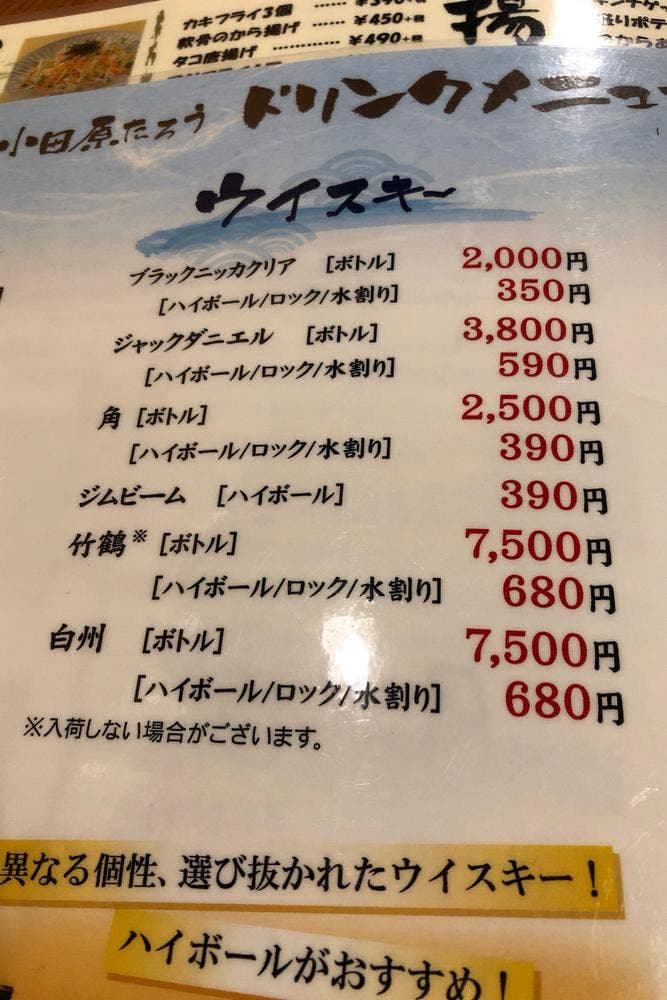 カキフライ3個 …… ¥390+税
軟骨のから揚げ …… ¥450+税
タコ唐揚げ …… ¥490+税
揚
小田原たろう ドリンクメニュー
ウイスキー
ブラックニッカクリア [ボトル] 2,000円
[ハイボール/ロック/水割り] 350円
ジャックダニエル [ボトル] 3,800円
[ハイボール/ロック/水割り] 590円
角 [ボトル] 2,500円
[ハイボール/ロック/水割り] 390円
ジムビーム [ハイボール] 390円
竹鶴※ [ボトル] 7,500円
[ハイボール/ロック/水割り] 680円
白州 [ボトル] 7,500円
[ハイボール/ロック/水割り] 680円
※入荷しない場合がございます。
異なる個性、選び抜かれたウイスキー！
ハイボールがおすすめ！